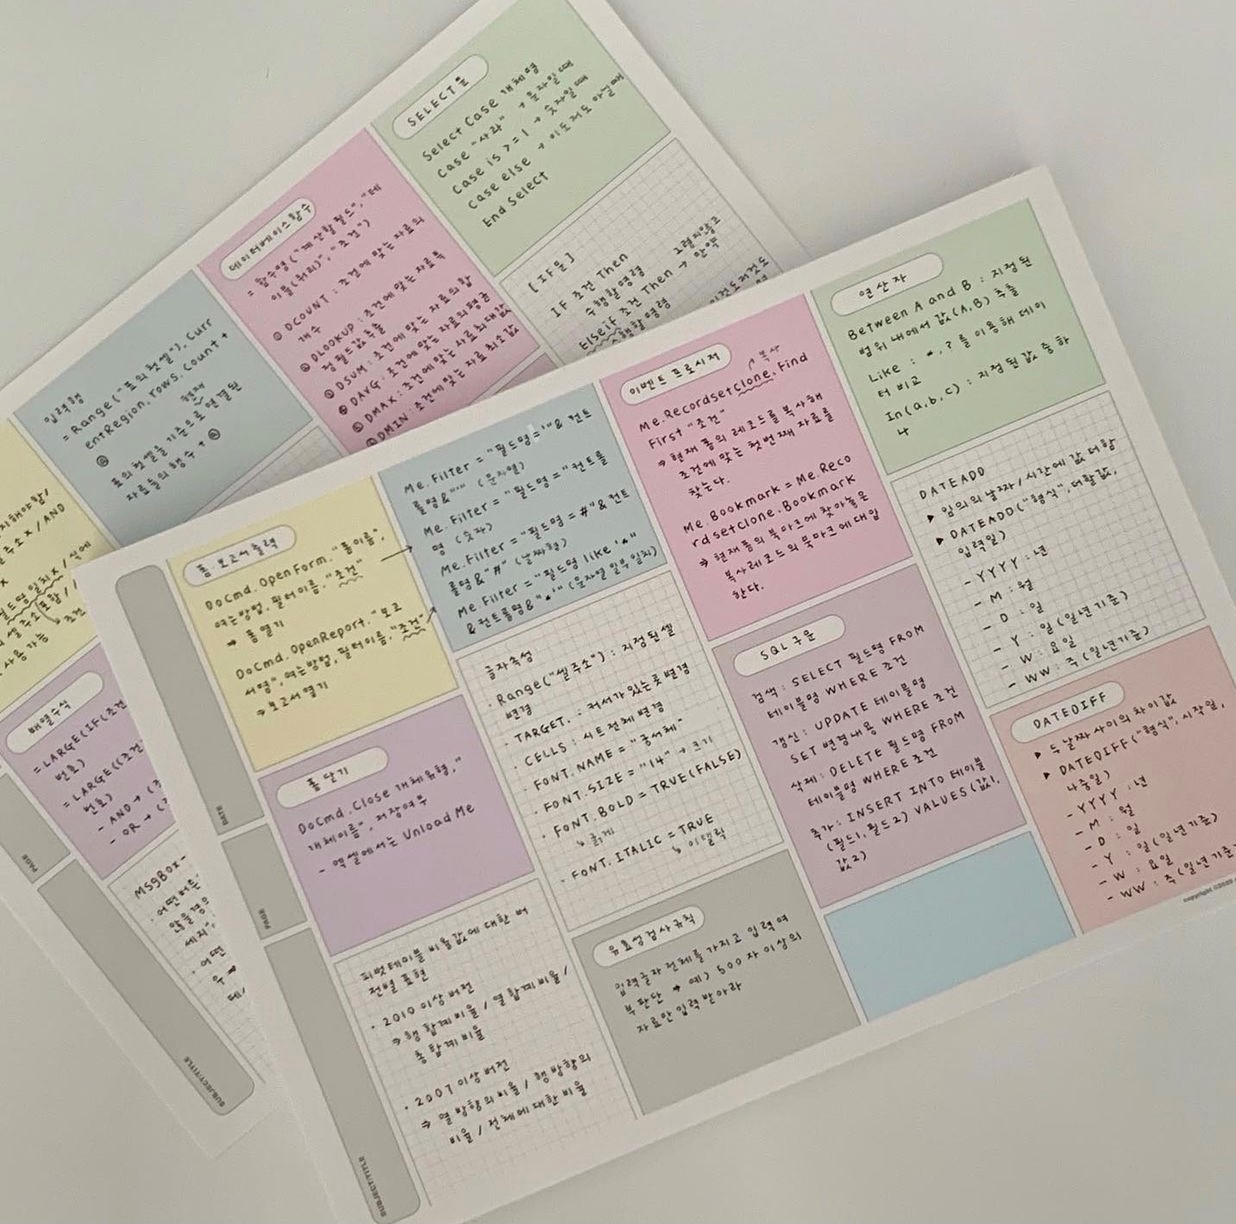 SELECT문
Select Case 개체명
Case "사과" → 문자일때
Case is >= 1 → 숫자일때
Case else → 이도저도 아닐때
End Select
[IF문]
IF 조건 Then
수행할명령 그렇지않고
Elseif 조건 Then → 만약
수행할명령
데이터베이스함수
= 함수명("계산할필드","테
이블(쿼리)","조건")
① DCOUNT : 조건에 맞는 자료의
개수
② DLOOKUP : 조건에 맞는 자료 특
정필드값 추출
③ DSUM : 조건에 맞는 자료의 합
④ DAVG : 조건에 맞는 자료의 평균
⑤ DMAX : 조건에 맞는 자료 최대값
⑥ DMIN : 조건에 맞는 자료 최소값
입력행
= Range("표의 첫셀"). Curr
entRegion. rows. Count +
표의 첫셀을 기준으로 연결된
자료들의 행수 +
배열수식
= LARGE(IF(조건
번호)
= LARGE((조건
번호)
- AND →
- OR →
MSGBOX
PAGE
SUBJECT/TITLE
폼 보고서 출력
DoCmd. OpenForm. "폼이름",
여는방법, 필터이름, "조건"
⇒ 폼 열기
DoCmd. OpenReport. "보고
서명", 여는방법, 필터이름, "조건"
⇒ 보고서 열기
Me. Filter = "필드명='"& 컨트
롤명&"'" (문자열)
Me. Filter = "필드명="컨트롤
명 (숫자)
Me. Filter = "필드명=#"&컨트
롤명&"#" (날짜형)
Me Filter = "필드명 like '*"
&컨트롤명&"*'" (문자열 일부 일치)
이벤트 프로시저
복사
Me. RecordsetClone. Find
First "조건"
⇒ 현재 폼의 레코드를 복사해
조건에 맞는 첫번째 자료를
찾는다.
Me. Bookmark = Me. Reco
rdsetClone. Bookmark
⇒ 현재 폼의 북마크에 찾아놓은
복사레코드의 북마크에 대입
한다.
연산자
Between A and B : 지정된
범위 내에서 값(A,B) 추출
Like : *, ? 를 이용해 데이
터 비교
In(a,b,c) : 지정된 값 중 하
나
DATEADD
▶ 임의의 날짜/시간에 값 더함
▶ DATEADD("형식",더할값,
입력일)
- YYYY : 년
- M : 월
- D : 일
- Y : 일(일년기준)
- W : 요일
- WW : 주(일년기준)
폼 닫기
DoCmd. Close 개체유형, "
개체이름", 저장여부
- 엑셀에서는 Unload Me
글자속성
· Range("셀주소") : 지정된 셀
변경
· TARGET. : 커서가 있는 곳 변경
· CELLS : 시트 전체 변경
· FONT. NAME = "궁서체"
· FONT. SIZE = "14" → 크기
· FONT. BOLD = TRUE(FALSE)
↳ 굵게
· FONT. ITALIC = TRUE
↳ 이탤릭
SQL구문
검색 : SELECT 필드명 FROM
테이블명 WHERE 조건
갱신 : UPDATE 테이블명
SET 변경내용 WHERE 조건
삭제 : DELETE 필드명 FROM
테이블명 WHERE 조건
추가 : INSERT INTO 테이블
(필드1, 필드2) VALUES (값1,
값2)
DATEDIFF
▶ 두 날짜 사이의 차이값
▶ DATEDIFF("형식",시작일,
나중일)
- YYYY : 년
- M : 월
- D : 일
- Y : 일(일년기준)
- W : 요일
- WW : 주(일년기준
피벗테이블 비율값에 대한 버
전별 표현
· 2010 이상 버전
⇒ 행 합계 비율 / 열 합계 비율 /
총 합계 비율
· 2007 이상 버전
⇒ 열 방향의 비율 / 행 방향의
비율 / 전체에 대한 비율
유효성검사규칙
입력글자 전체를 가지고 입력여
부 판단 → 예) 500자 이상의
자료만 입력받아라
DATE
PAGE
SUBJECT/TITLE